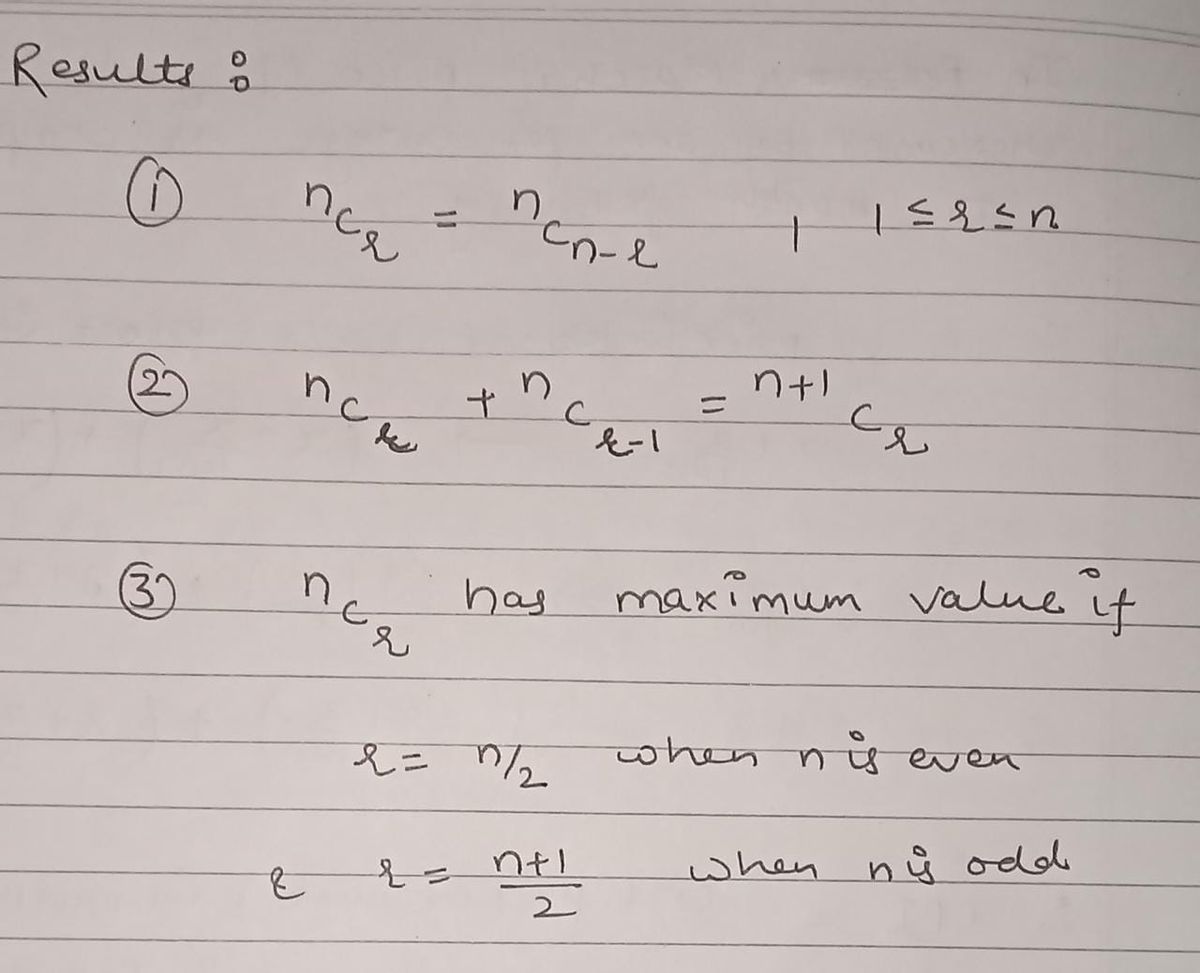 Results :
① ⁿCᵣ = ⁿCₙ₋ᵣ , 1 ≤ r ≤ n
② ⁿCᵣ + ⁿCᵣ₋₁ = ⁿ⁺¹Cᵣ
③ ⁿCᵣ has maximum value if
r = n/2 when n is even
& r = (n+1)/2 when n is odd